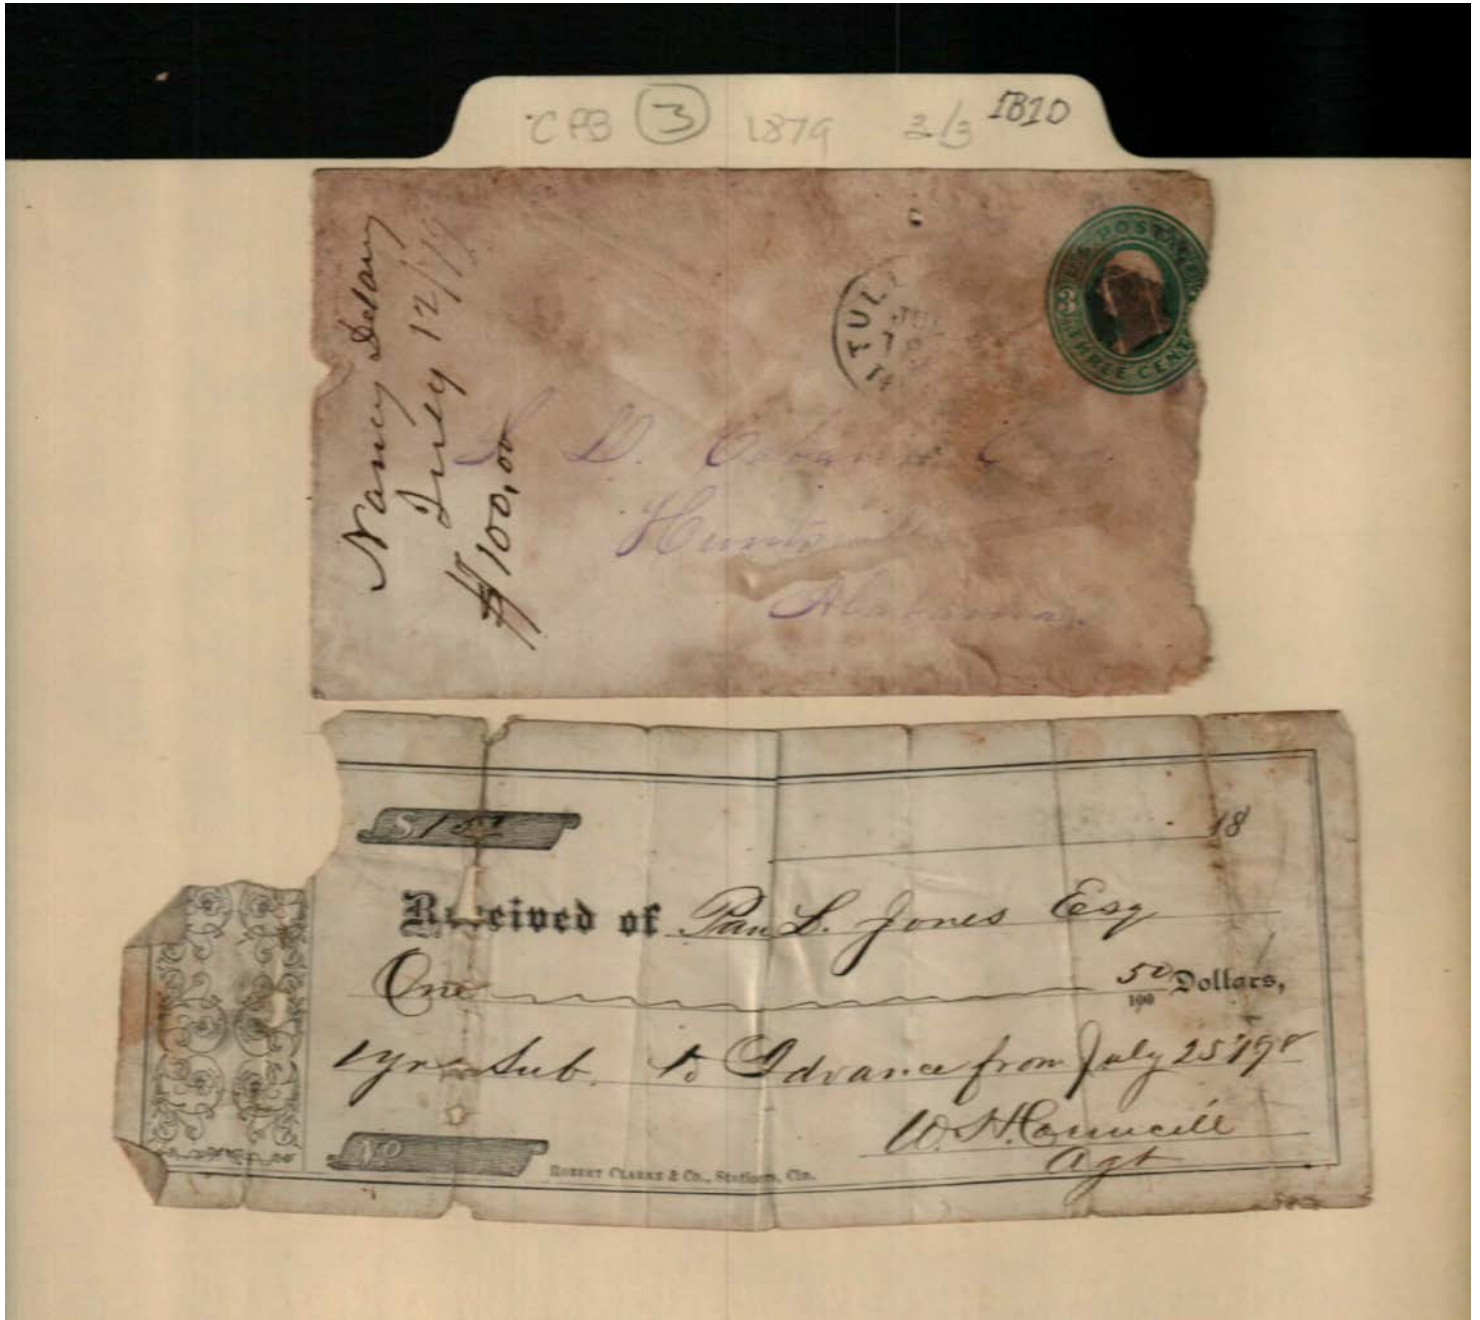 CFB 3 1879 2/3 IB10
Nancy Delany
July 12/79
$100,00
U.S. POSTAGE
THREE CENTS
3
TUL
JUL
S. D. Cabaniss Esq
Huntsville
Alabama.
$ 1 50
18
Received of Pau L. Jones Esq
One 50/100 Dollars,
1 yrs Sub. to Advance from July 25
Agt
No
ROBERT CLARKE & Co., Stationers, Cin.